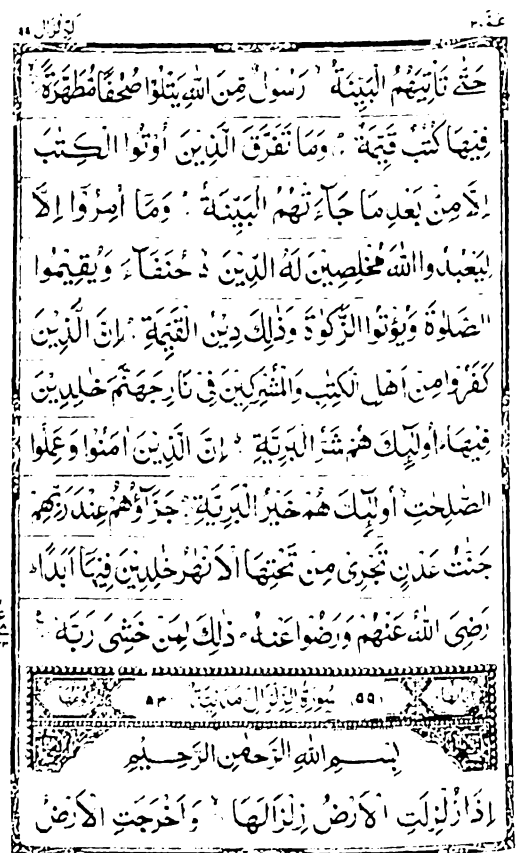 عمّ ٣٠
الزلزال ٩٩
حَتّٰى تَاْتِيَهُمُ الْبَيِّنَةُ ۙ رَسُوْلٌ مِّنَ اللّٰهِ يَتْلُوْا صُحُفًا مُّطَهَّرَةً ۙ
فِيْهَا كُتُبٌ قَيِّمَةٌ ؕ وَمَا تَفَرَّقَ الَّذِيْنَ اُوْتُوا الْكِتٰبَ
اِلَّا مِنْۢ بَعْدِ مَا جَآءَتْهُمُ الْبَيِّنَةُ ؕ وَمَآ اُمِرُوْٓا اِلَّا
لِيَعْبُدُوا اللّٰهَ مُخْلِصِيْنَ لَهُ الدِّيْنَ ۙ حُنَفَآءَ وَيُقِيْمُوا
الصَّلٰوةَ وَيُؤْتُوا الزَّكٰوةَ وَذٰلِكَ دِيْنُ الْقَيِّمَةِ ؕ اِنَّ الَّذِيْنَ
كَفَرُوْا مِنْ اَهْلِ الْكِتٰبِ وَالْمُشْرِكِيْنَ فِيْ نَارِ جَهَنَّمَ خٰلِدِيْنَ
فِيْهَا ؕ اُولٰٓئِكَ هُمْ شَرُّ الْبَرِيَّةِ ؕ اِنَّ الَّذِيْنَ اٰمَنُوْا وَعَمِلُوا
الصّٰلِحٰتِ ۙ اُولٰٓئِكَ هُمْ خَيْرُ الْبَرِيَّةِ ؕ جَزَآؤُهُمْ عِنْدَ رَبِّهِمْ
جَنّٰتُ عَدْنٍ تَجْرِيْ مِنْ تَحْتِهَا الْاَنْهٰرُ خٰلِدِيْنَ فِيْهَآ اَبَدًا ؕ
رَضِيَ اللّٰهُ عَنْهُمْ وَرَضُوْا عَنْهُ ؕ ذٰلِكَ لِمَنْ خَشِيَ رَبَّهٗ
سُوْرَةُ الزِّلْزَالِ مَدَنِيَّةٌ
بِسْمِ اللّٰهِ الرَّحْمٰنِ الرَّحِيْمِ
اِذَا زُلْزِلَتِ الْاَرْضُ زِلْزَالَهَا ۙ وَاَخْرَجَتِ الْاَرْضُ